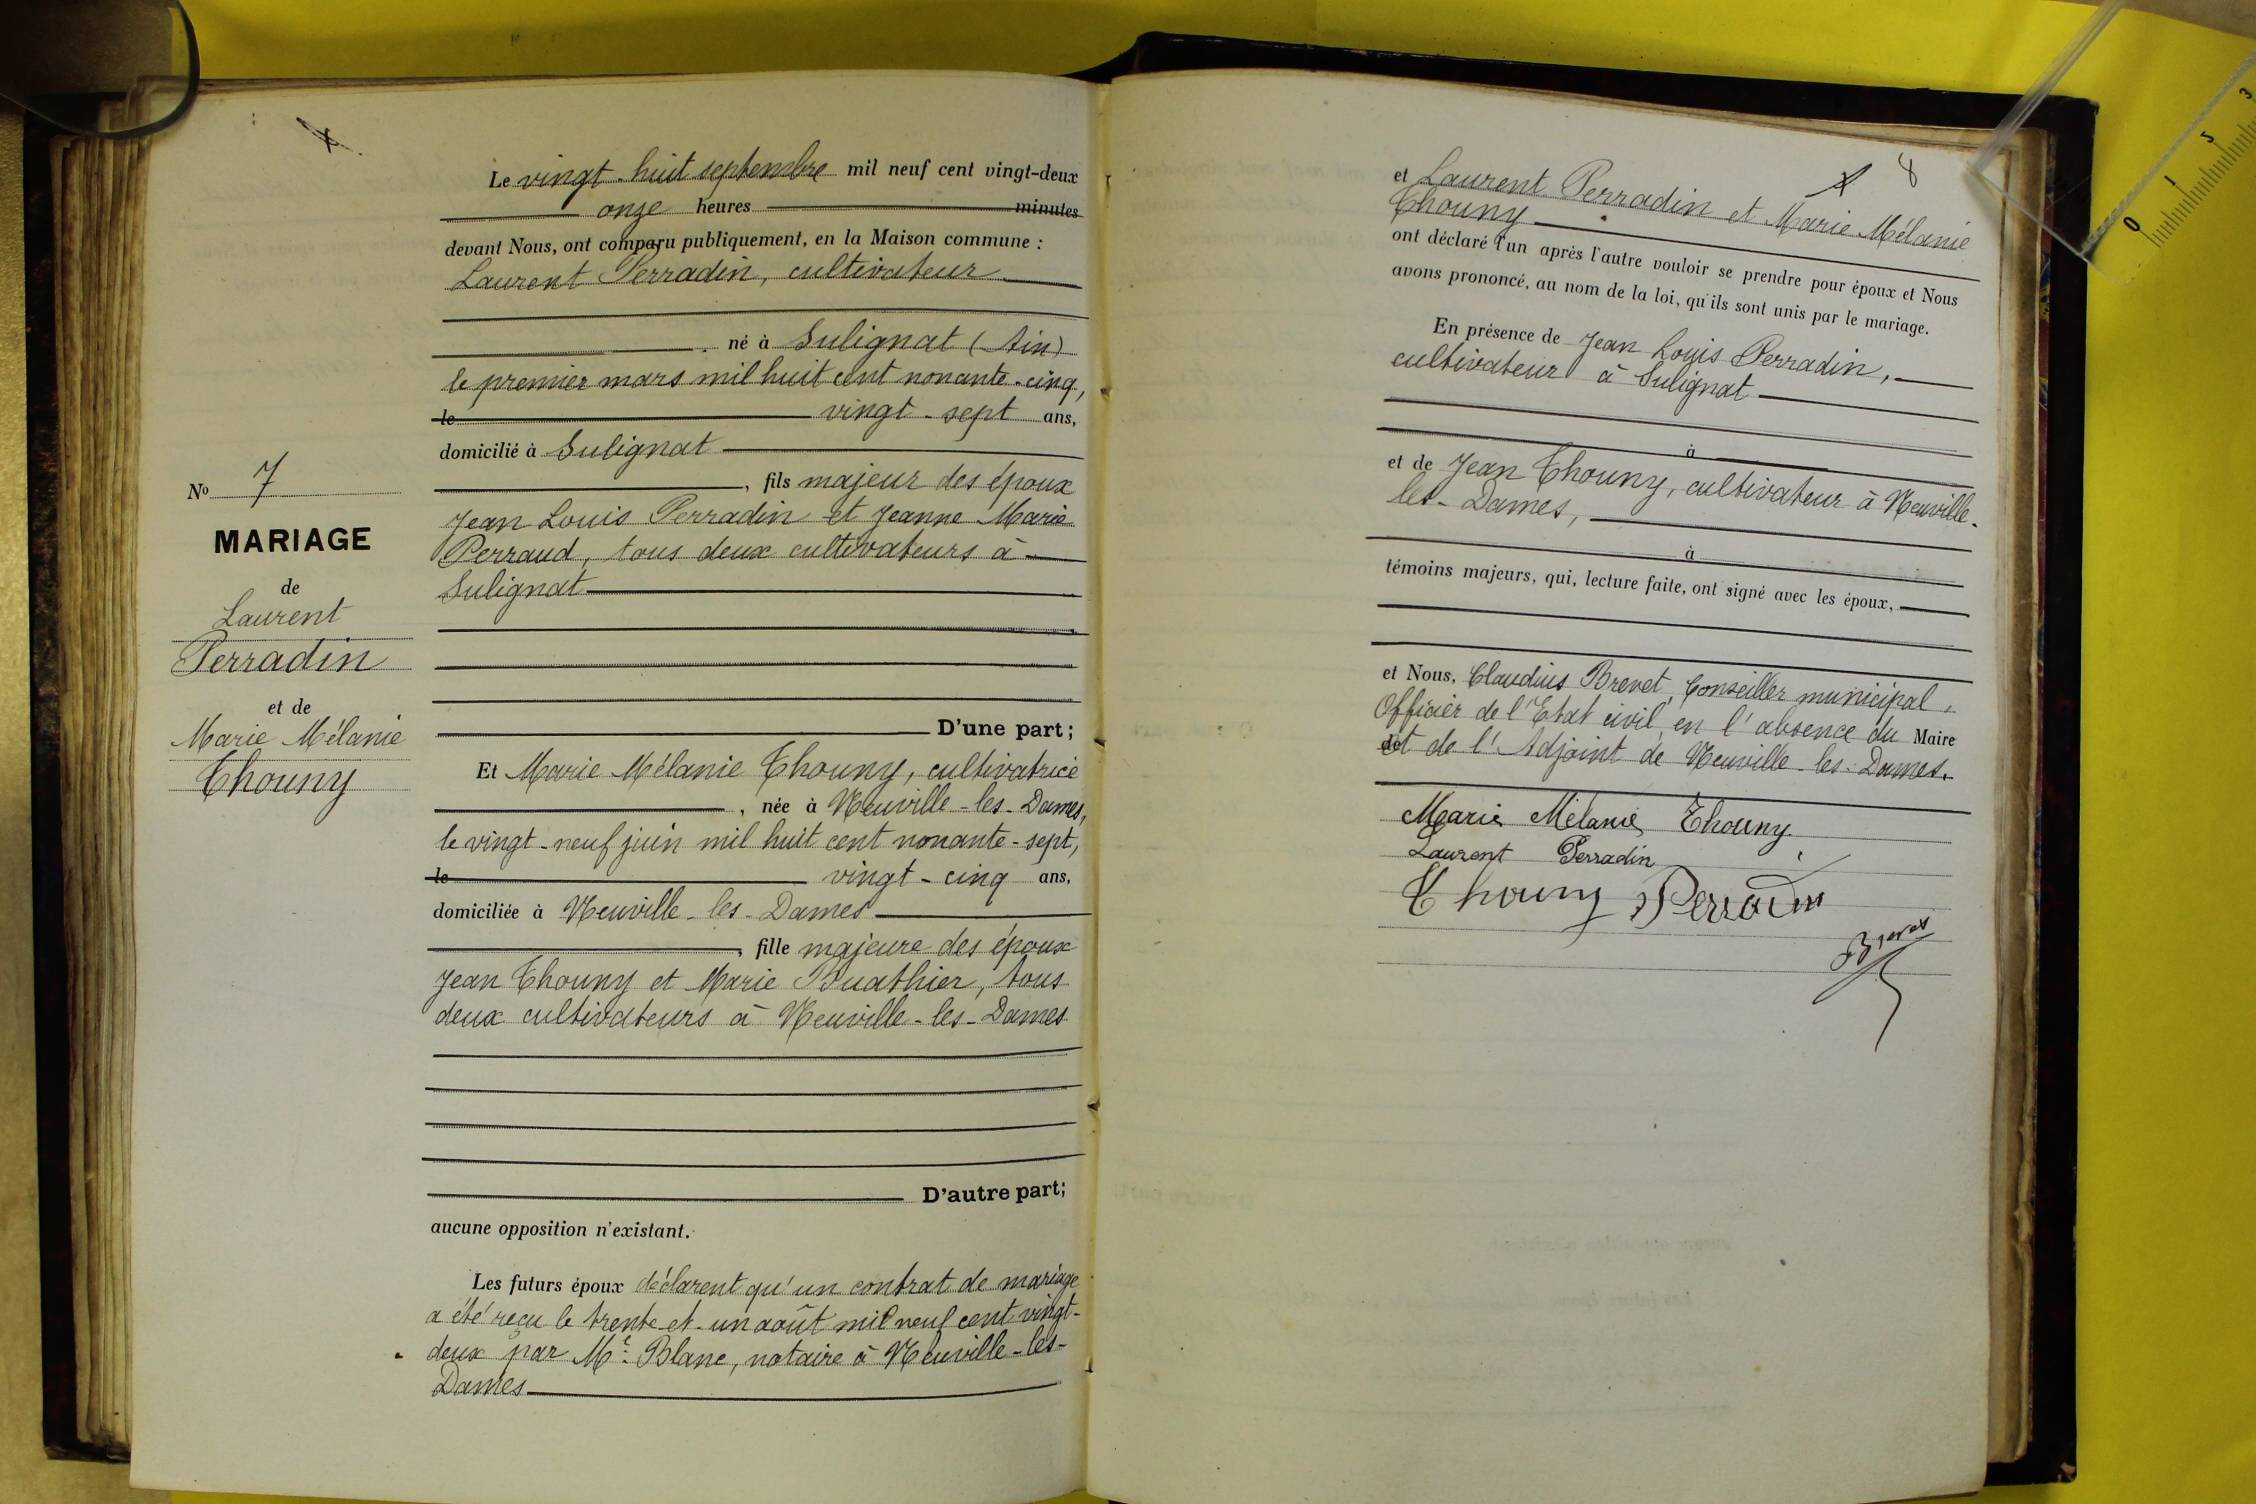 Nº 7
MARIAGE
de
Laurent
Perradin
et de
Marie Mélanie
Thouny
Le vingt-huit septembre mil neuf cent vingt-deux
onze heures minutes
devant Nous, ont comparu publiquement, en la Maison commune :
Laurent Perradin, cultivateur
né à Sulignat (Ain)
le premier mars mil huit cent nonante-cinq,
le vingt-sept ans,
domicilié à Sulignat
, fils majeur des époux
Jean Louis Perradin et Jeanne Marie
Perraud, tous deux cultivateurs à
Sulignat
D'une part;
Et Marie Mélanie Thouny, cultivatrice
, née à Neuville-les-Dames,
le vingt-neuf juin mil huit cent nonante-sept,
le vingt-cinq ans,
domiciliée à Neuville-les-Dames
, fille majeure des époux
Jean Thouny et Marie Buathier, tous
deux cultivateurs à Neuville-les-Dames
D'autre part;
aucune opposition n'existant.
Les futurs époux déclarent qu'un contrat de mariage
a été reçu le trente-et-un août mil neuf cent vingt-
deux par Me Blanc, notaire à Neuville-les-
Dames
8
et Laurent Perradin et Marie Mélanie
Thouny
ont déclaré l'un après l'autre vouloir se prendre pour époux et Nous
avons prononcé, au nom de la loi, qu'ils sont unis par le mariage.
En présence de Jean Louis Perradin,
cultivateur à Sulignat
à
et de Jean Thouny, cultivateur à Neuville-
les-Dames,
à
témoins majeurs, qui, lecture faite, ont signé avec les époux,
et Nous, Claudius Brevet, Conseiller municipal,
Officier de l'Etat civil en l'absence du Maire
et de l'Adjoint de Neuville-les-Dames.
Marie Mélanie Thouny
Laurent Perradin
Thouny Perradin
Brevet
0 1 2 3